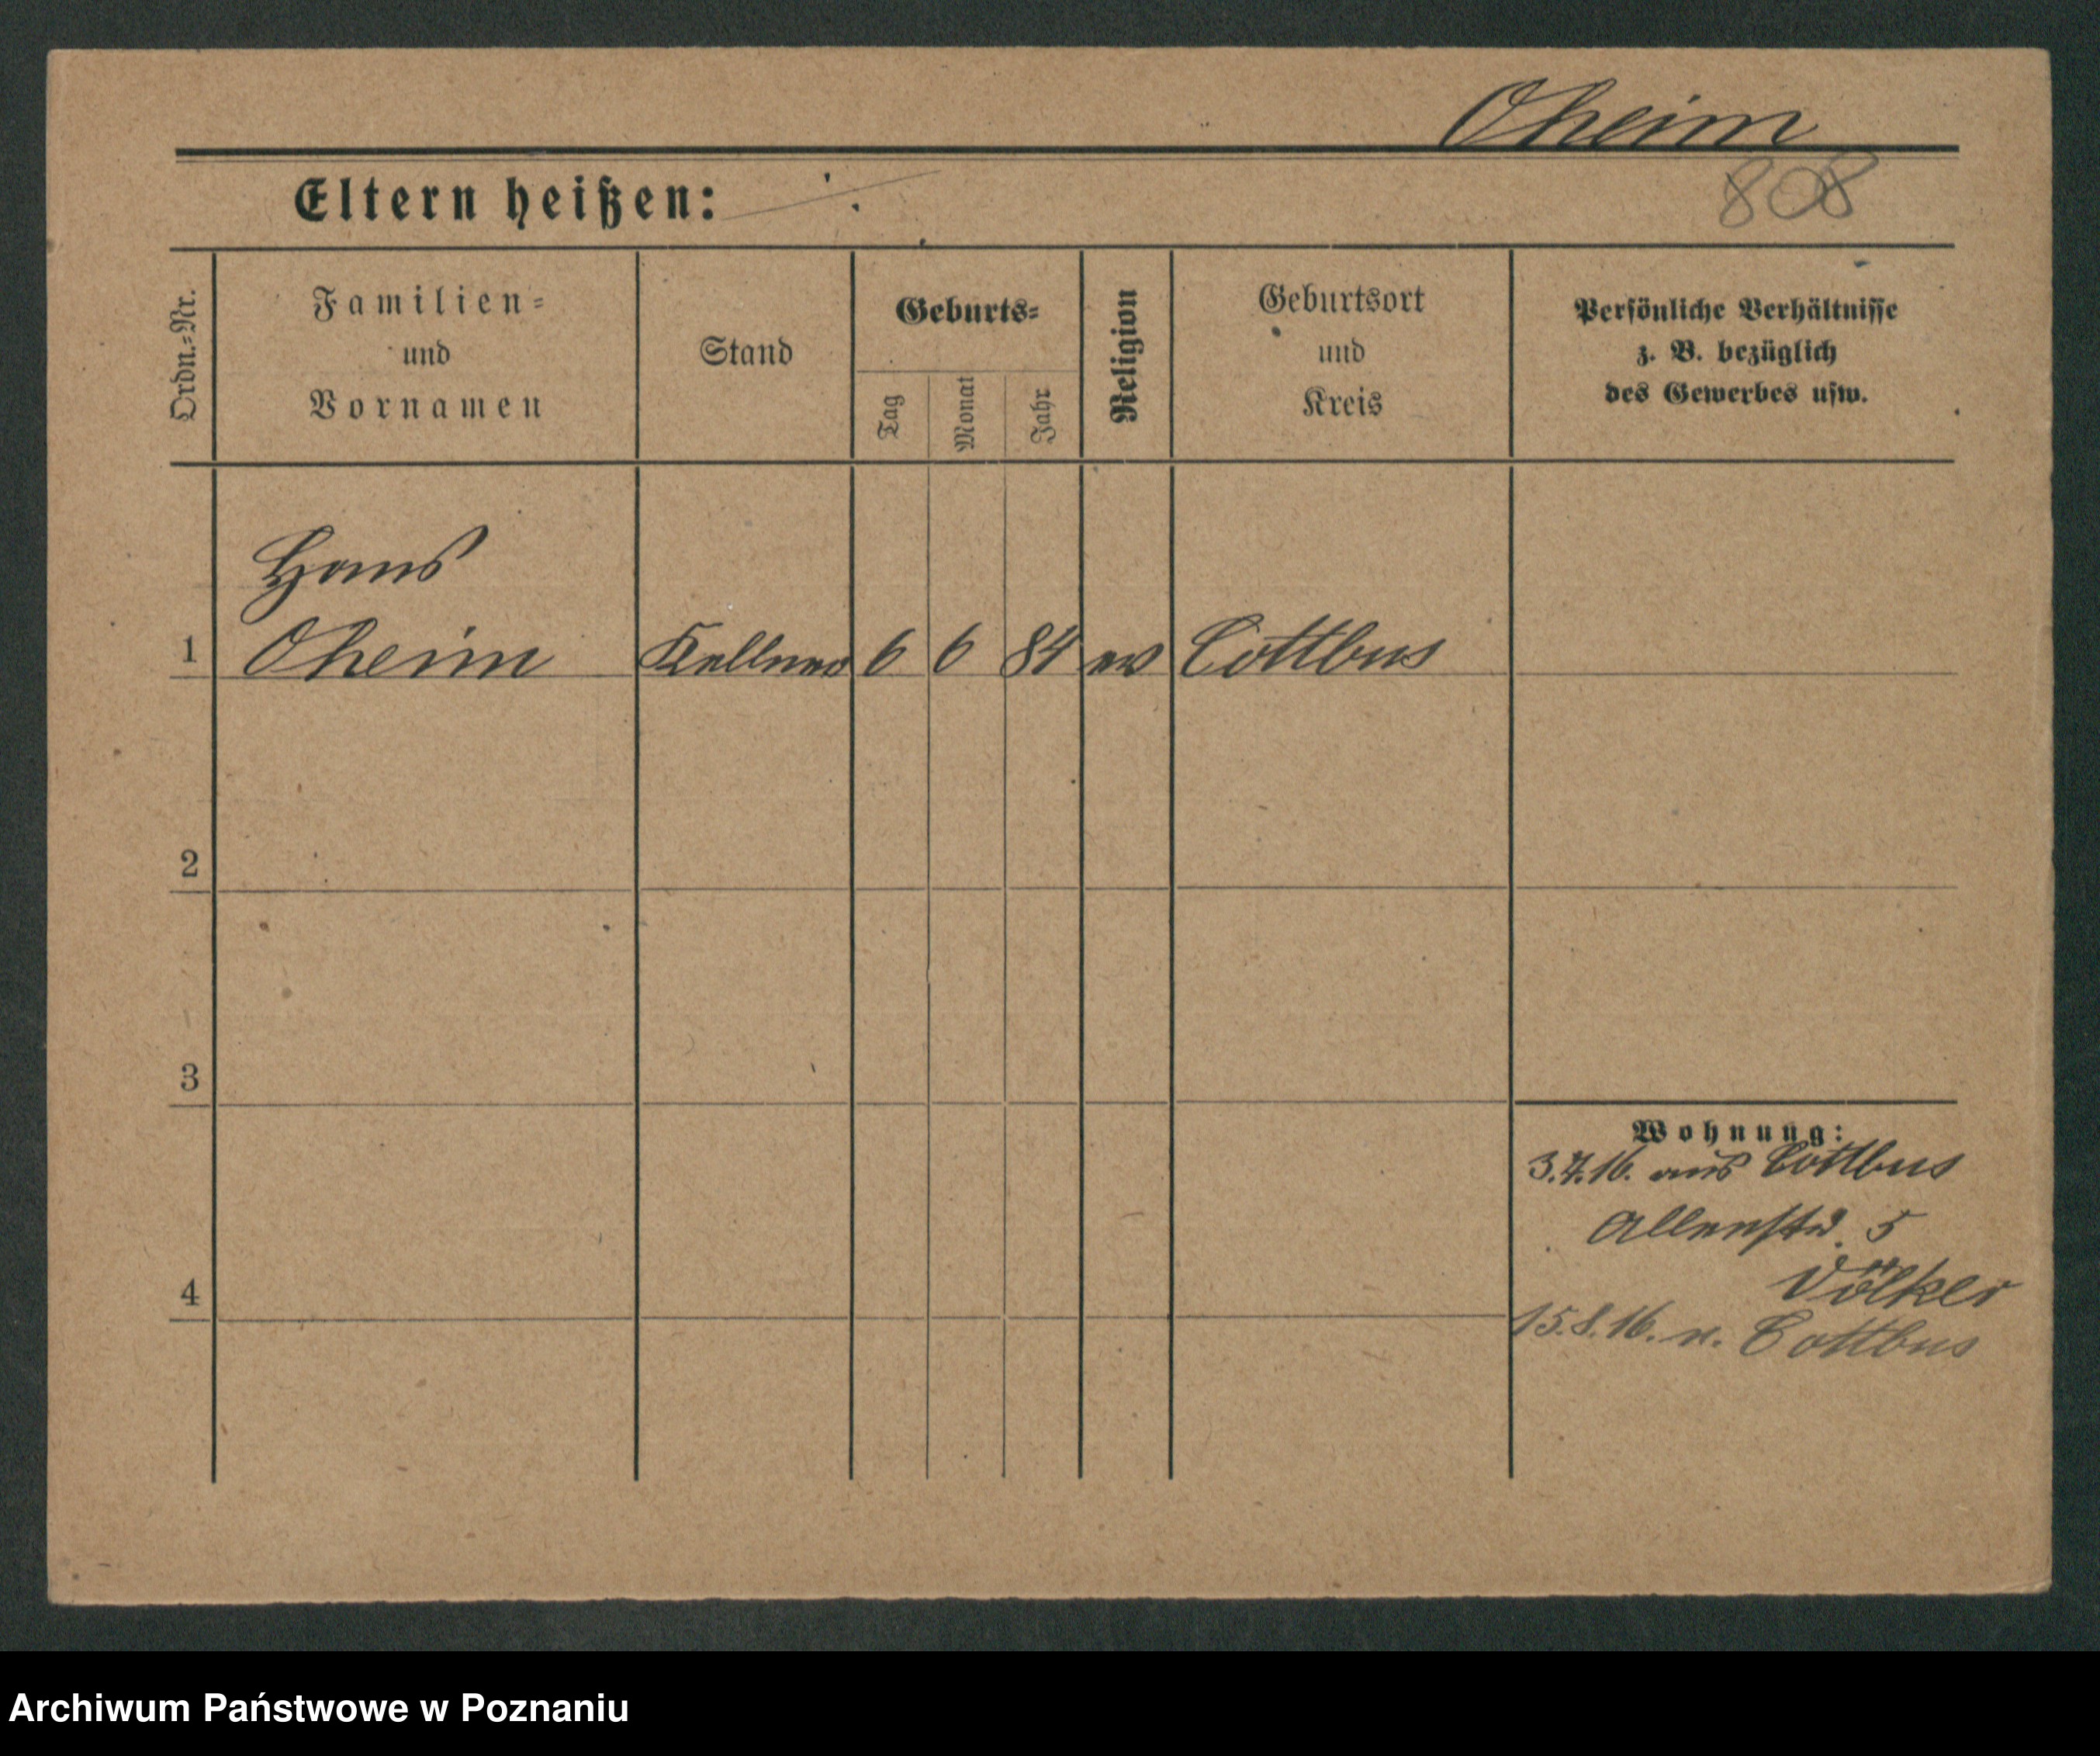 Oheim
808
Eltern heißen:
Ordn.-Nr.
Familien-
und
Vornamen
Stand
Geburts-
Tag
Monat
Jahr
Religion
Geburtsort
und
Kreis
Persönliche Verhältnisse
z. B. bezüglich
des Gewerbes usw.
Hans
1 Oheim Kellner 6 6 84 ev Cottbus
2
3
Wohnung:
3.7.16. aus Cottbus
5
Völker
4
15.8.16. n. Cottbus
Archiwum Państwowe w Poznaniu